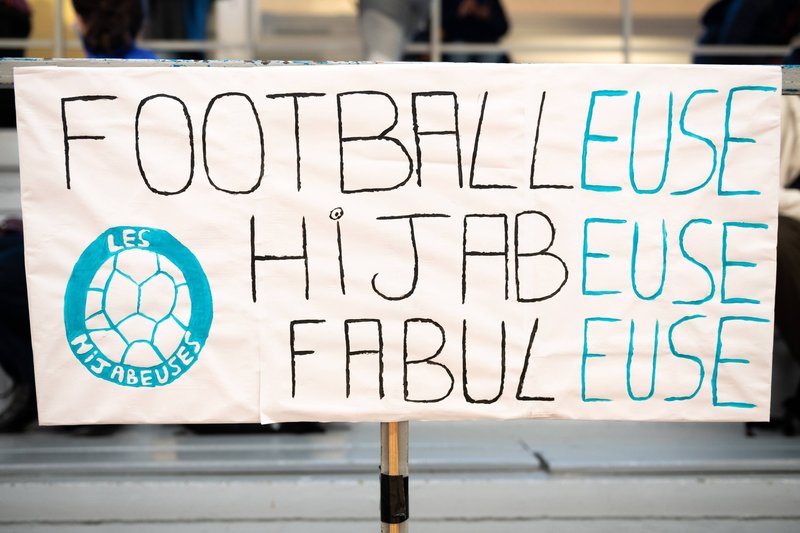 FOOTBALLEUSE
HiJABEUSE
FABULEUSE
LES
HIJABEUSES